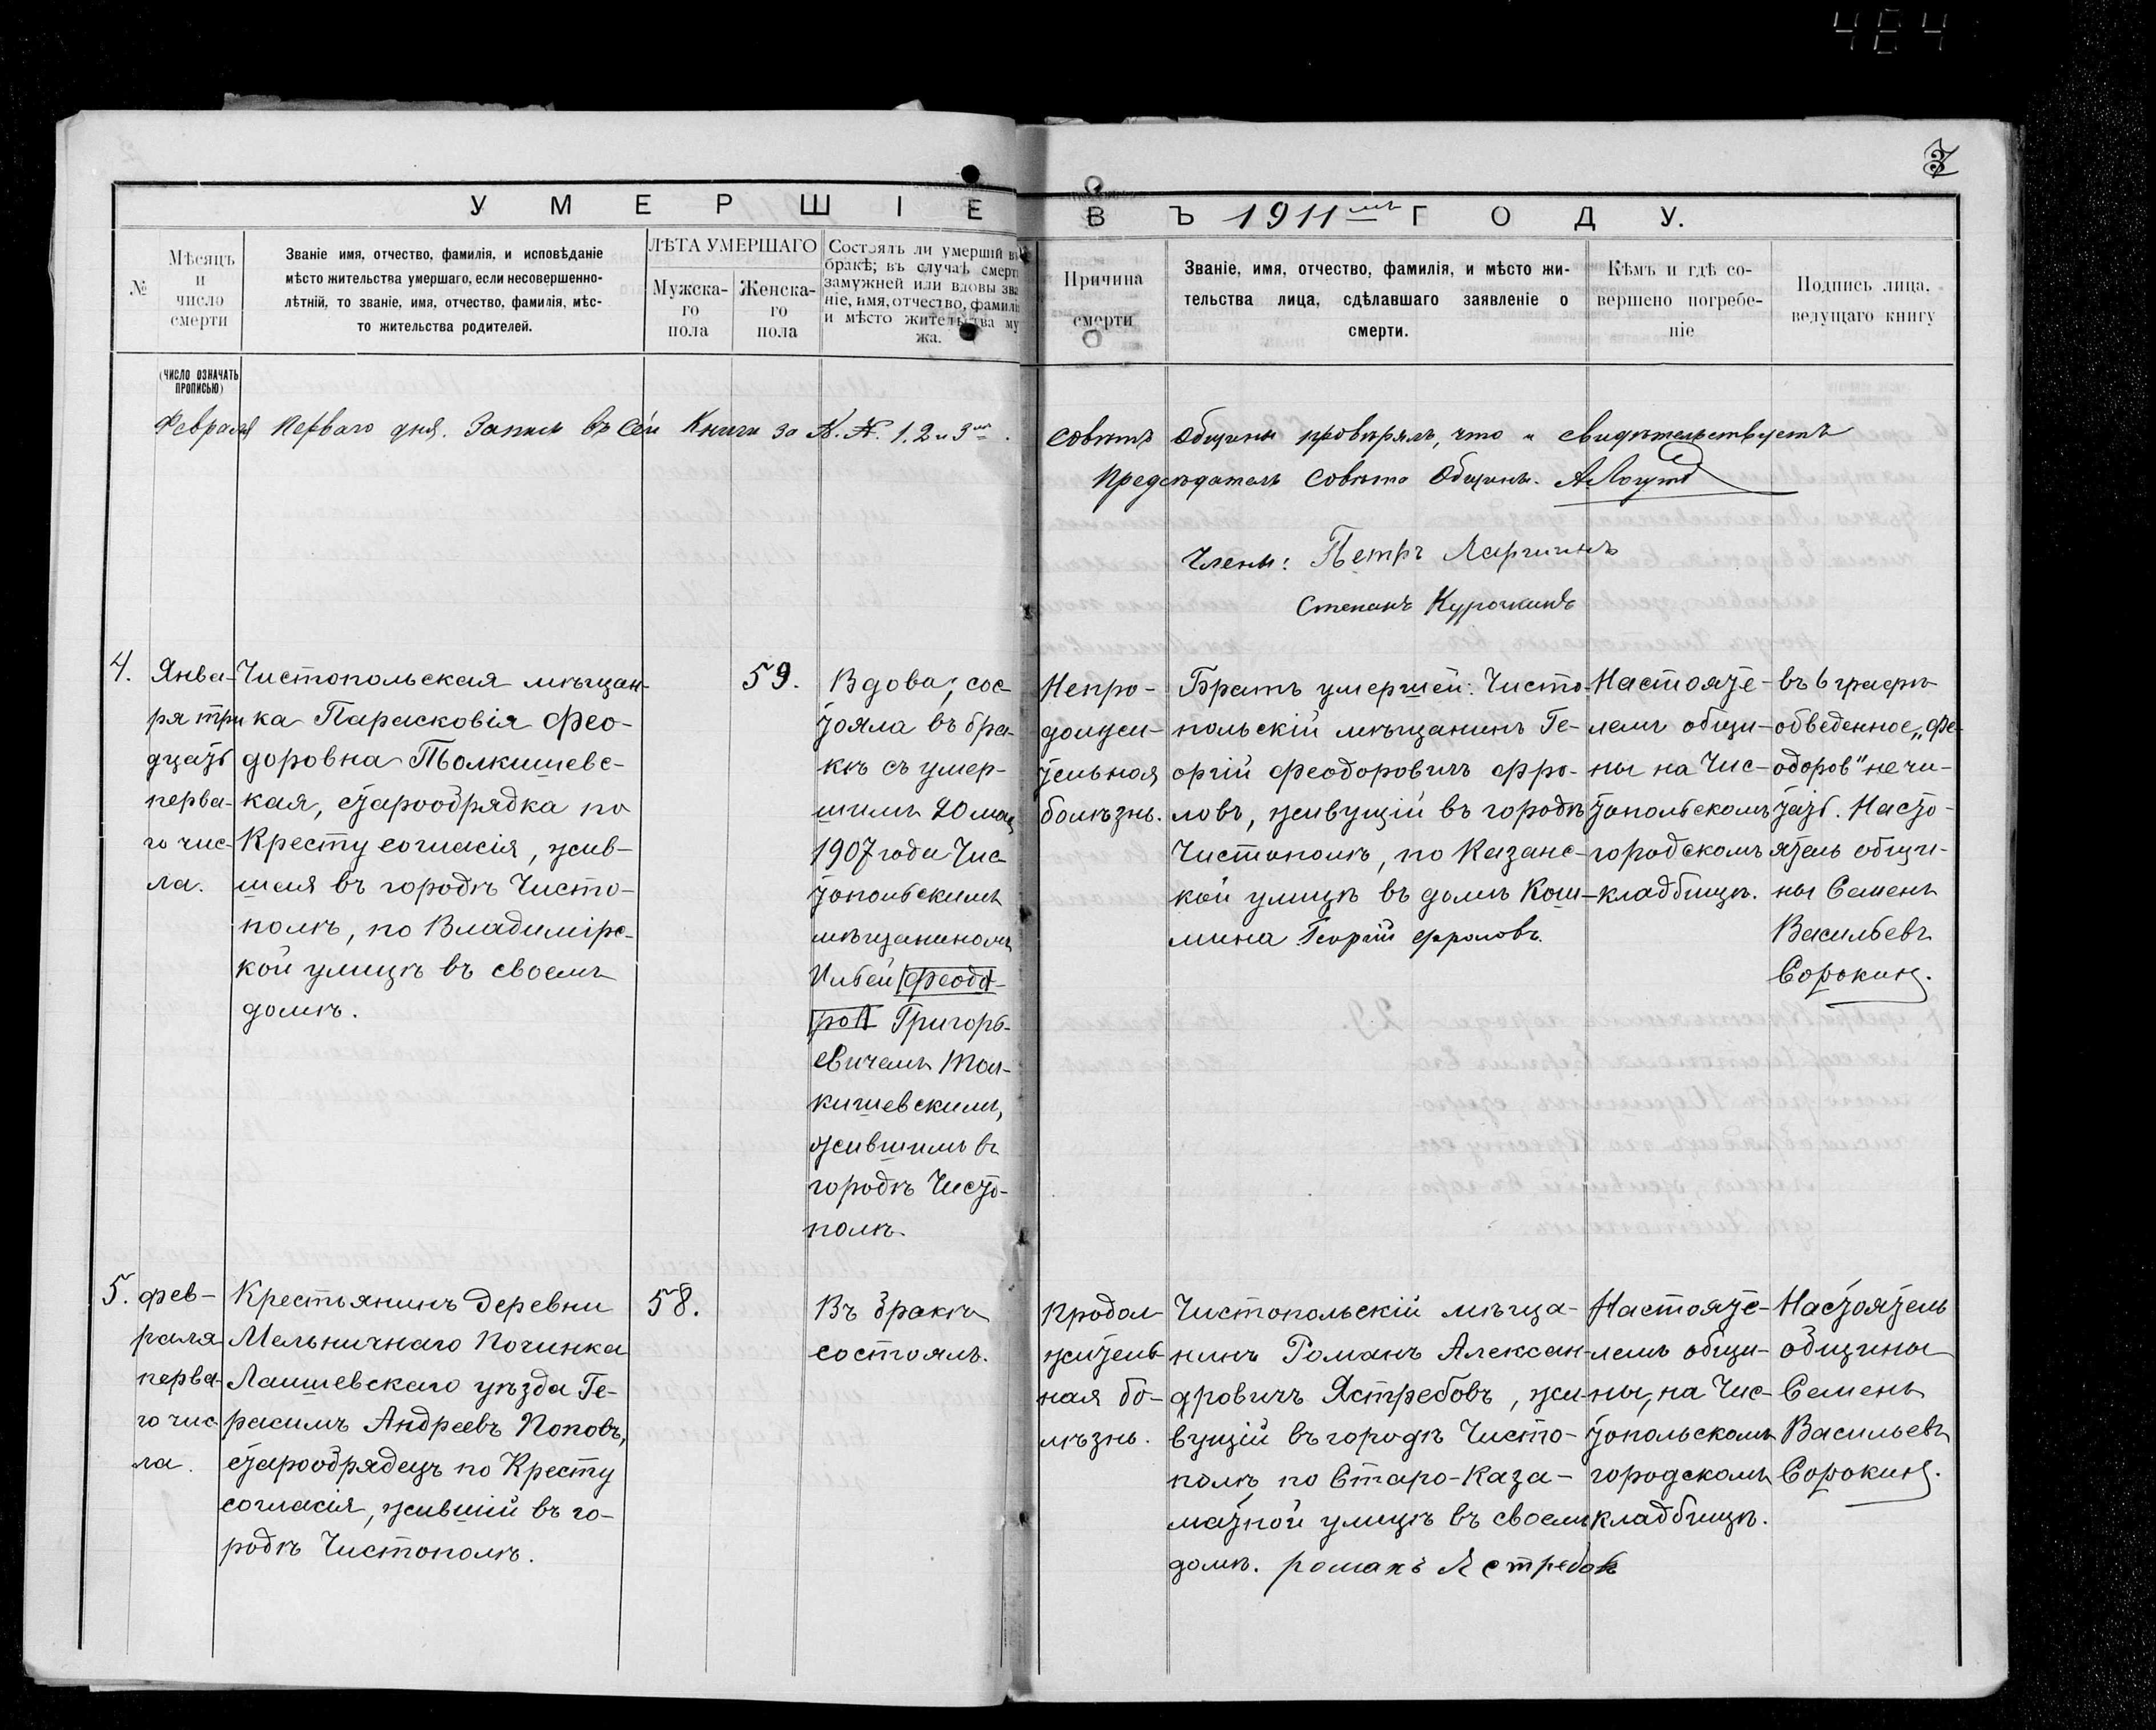 464
3
УМЕРШІЕ
ВЪ 1911мъ ГОДУ.
№
Мѣсяцъ
и
число
смерти
Званіе имя, отчество, фамилія, и исповѣданіе
мѣсто жительства умершаго, если несовершенно-
лѣтній, то званіе, имя, отчество, фамилія, мѣс-
то жительства родителей.
ЛѢТА УМЕРШАГО
Мужска-
го
пола
Женска-
го
пола
Состоялъ ли умершій въ
бракѣ; въ случаѣ смерти
замужней или вдовы зва
ніе, имя, отчество, фамилія
и мѣсто жительства му
жа.
Причина
смерти
Званіе, имя, отчество, фамилія, и мѣсто жи-
тельства лица, сдѣлавшаго заявленіе о
смерти.
Кѣмъ и гдѣ со-
вершено погребе-
ніе
Подпись лица,
ведущаго книгу
(ЧИСЛО ОЗНАЧАТЬ
ПРОПИСЬЮ)
Февраля Перваго дня. Записи въ Сей Книги за №.№. 1, 2 и 3й.
Совѣтъ Общины провѣрялъ, что и свидѣтельствуетъ
Предсѣдатель Совѣта Общины.
Члены: Петръ
Степанъ Курочкинъ
4.
Янва-
ря три
дцать
перва-
го чис-
ла.
Чистопольская мѣщан-
ка Парасковія Фео-
доровна Толкишевс-
кая, старообрядка по
Кресту согласія, жив-
шая въ городѣ Чисто-
полѣ, по Владимірс-
кой улицѣ въ своемъ
домѣ.
59.
Вдова; сос-
тояла въ бра-
кѣ съ умер-
шимъ 20 мая
1907 года Чис
топольскимъ
мѣщаниномъ
Ильей Феодо-
ров Григорь-
евичемъ Тол-
кишевскимъ,
жившимъ въ
городѣ Чисто-
полѣ.
Непро-
должи-
тельная
болѣзнь.
Братъ умершей: Чисто-
польскій мѣщанинъ Ге-
оргій Феодоровичъ Фро-
ловъ, живущій въ городѣ
Чистополѣ, по Казанс-
кой улицѣ въ домѣ Кош-
мина Георгій Фроловъ.
Настояте-
лемъ общи-
ны на Чис-
топольскомъ
городскомъ
кладбищѣ.
въ 6 графѣ
обведенное „Фе-
одоров" не чи-
тать. Насто-
ятель общи-
ны Семенъ
Васильевъ
Сорокин.
5.
Фев-
раля
перва-
го чис
ла.
Крестьянинъ деревни
Мельничнаго Починка
Лаишевскаго уѣзда Ге-
расимъ Андреевъ Поповъ,
старообрядецъ по Кресту
согласія, жившій въ го-
родѣ Чистополѣ.
58.
Въ бракѣ
состоялъ.
Продол
житель
ная бо-
лѣзнь.
Чистопольскій мѣща-
нинъ Романъ Алексан-
дровичъ Ястребовъ, жи-
вущій въ городѣ Чисто-
полѣ, по Старо-Каза-
матной улицѣ въ своемъ
домѣ. романъ Ястребов
Настояте-
лемъ общи-
ны, на Чис-
топольскомъ
городскомъ
кладбищѣ.
Настоятель
общины
Семенъ
Васильевъ
Сорокин.